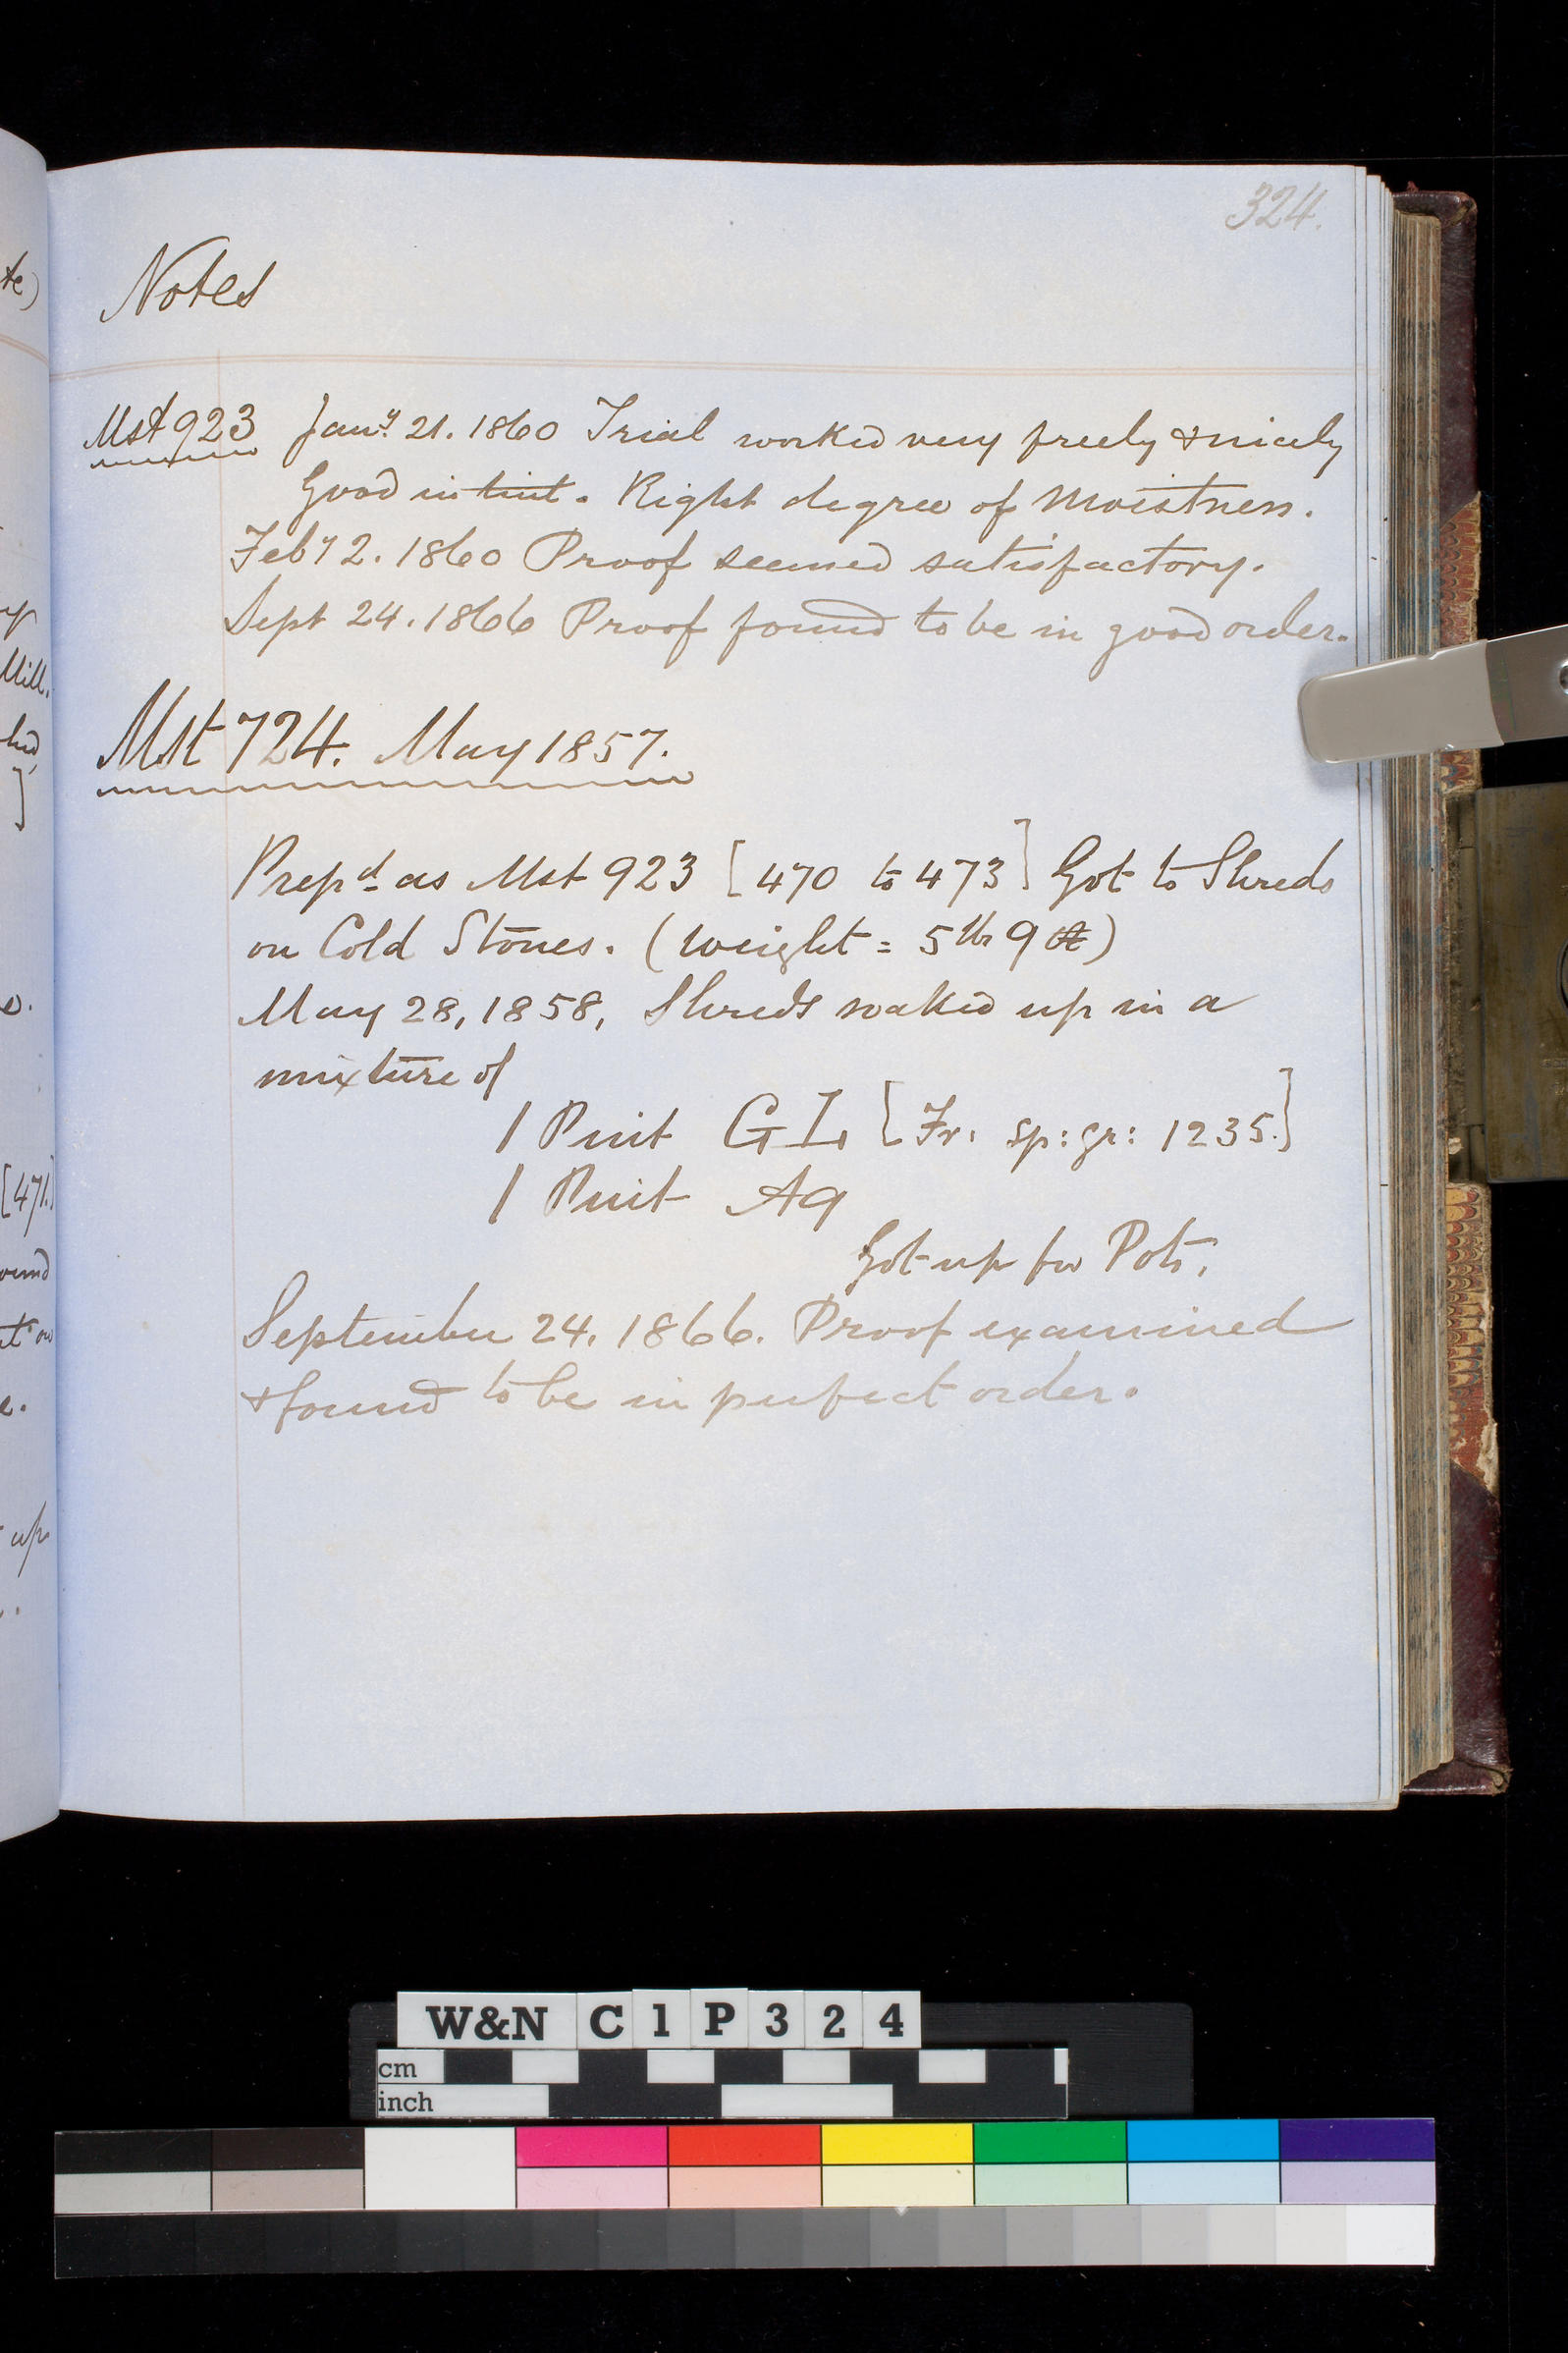 324.
Notes
Mst 923 Jany. 21. 1860 Trial worked very freely & nicely
Good in tint. Right degree of Moistness.
Feby 2. 1860 Proof seemed satisfactory.
Sept 24. 1866 Proof found to be in good order.
Mst 724. May 1857.
Prepd as Mst 923 [470 to 473] Got to Shreds
on Cold Stones. (Weight = 5 lb 9 oz)
May 28, 1858, Shreds soaked up in a
mixture of
1 Pint GL [Fr. sp: gr: 1235.]
1 Pint Aq
Got up for Pots.
September 24. 1866. Proof examined
& found to be in perfect order.
te)
Mill.
]
[471.]
up
W&N C1P324
cm
inch